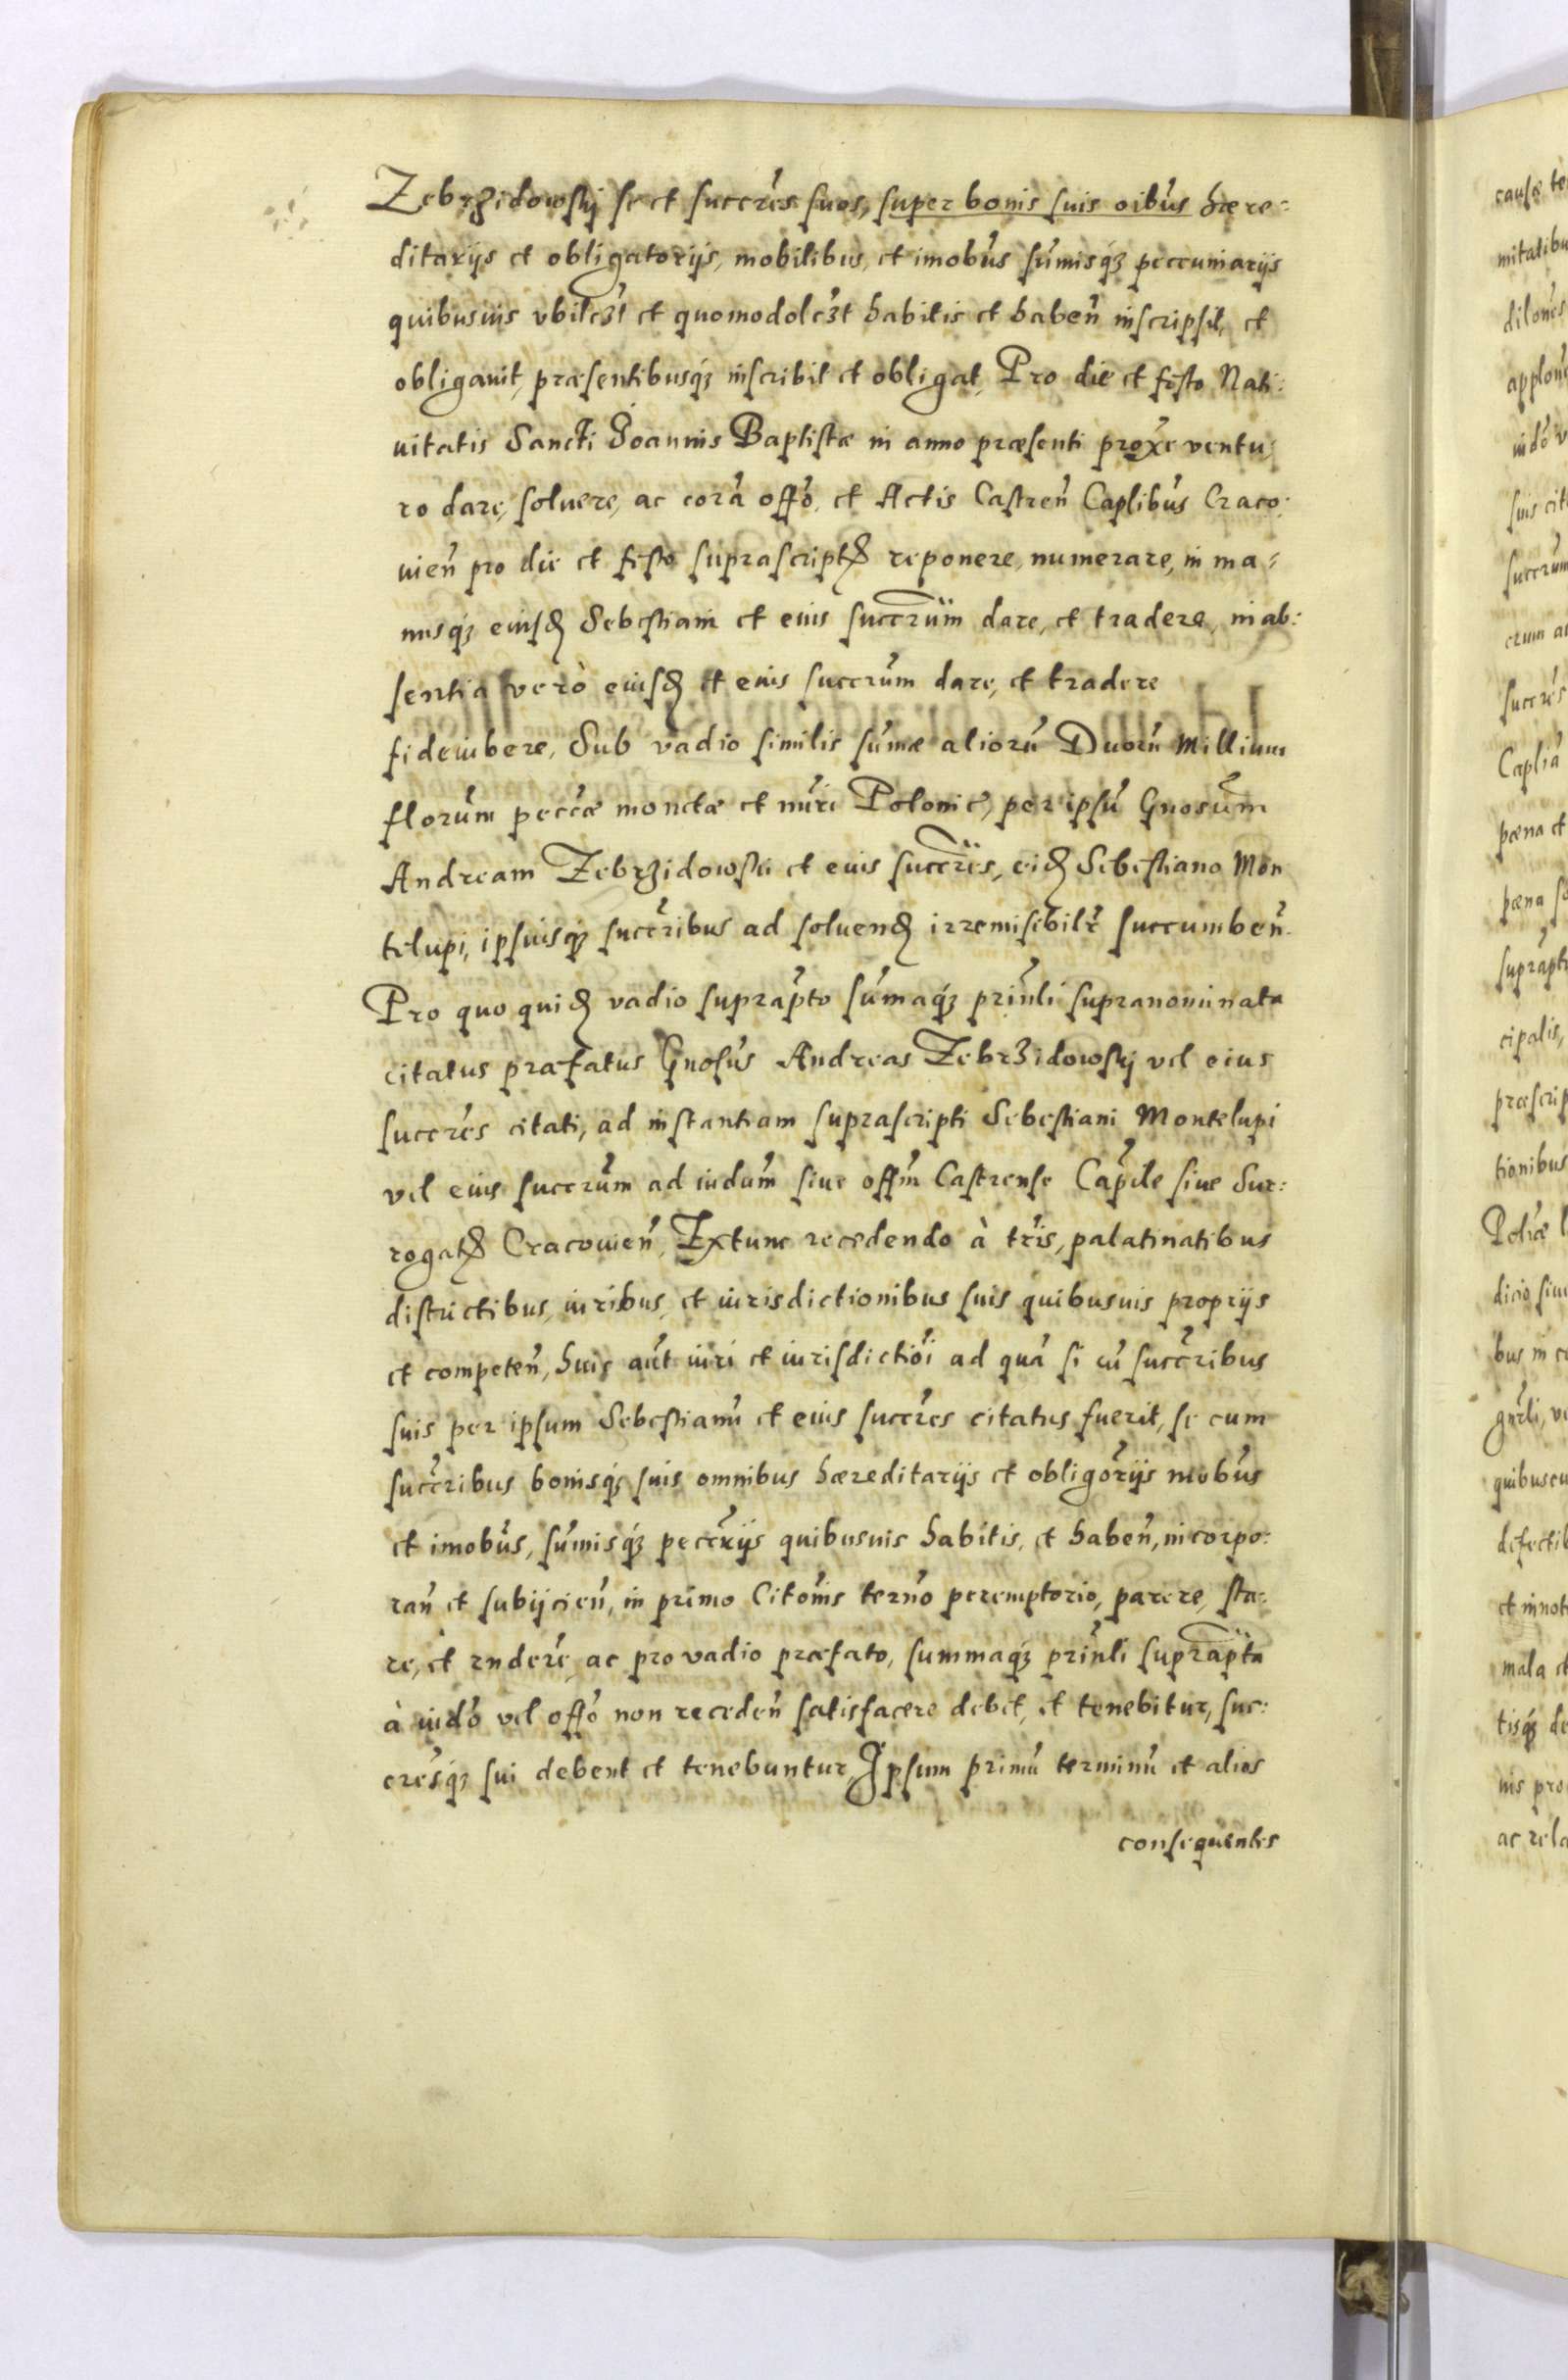 Zebrzidowskÿ se et succres suos, super bonis suis oibus hære:
ditarÿs et obligatorÿs, mobilibus, et imobus sumisq3 peccuniarÿs
quibusuis vbilc3t et quomodolc3t habitis et haben inscripsit, et
obligauit, præsentibusq3 inscribit et obligat, Pro die et festo Nati:
uitatis Sancti Joannis Baptistæ in anno præsenti proxe ventu,
ro dare, soluere, ac cora offo, et Actis Castren Caplibus Craco:
uien pro die et festo suprascript reponere, numerare, in ma:
nusq3 eiusd Sebestiani et eius succrum dare, et tradere, in ab:
sentia verò eiusd et eius succrum dare, et tradere
fideiubere, Sub vadio similis sumæ alioru Duoru Millium
florum peccæ monetæ et nuri Polonic, per ipsu Gnosum
Andream Zebrzidowski et eius succres, eid Sebestiano Mon
telupi, ipsiusq3 succribus ad soluend irremisibilr succumben.
Pro quo quid vadio suprapto sumaq3 prinli supranominata
citatus præfatus Gnosus Andreas Zebrzidowskÿ vel eius
succres citati, ad instantiam suprascripti Sebestiani Montelupi
vel eius succrum ad iudum siue offm Castrense Caple siue Sur:
rogat Cracouien, Extunc recedendo à tris, palatinatibus
districtibus, iuribus, et iurisdictionibus suis quibusuis proprÿs
et competen, huic aut iuri et iurisdictioi ad qua si cu succribus
suis per ipsum Sebestianu et eius succres citatus fuerit, se cum
succribus bonisq3 suis omnibus hæreditarÿs et obligorÿs mobus
et imobus, sumisq3 peccrÿs quibusuis habitis, et haben, incorpo:
ran et subÿcien, in primo Citonis terno peremptorio, parere, sta:
re, et rndere, ac pro vadio præfato, summaq3 prinli suprapta
à iudo vel offo non receden satisfacere debet, et tenebitur, suc:
cresq3 sui debent et tenebuntur, Ipsum primu terminu et alios
consequentes